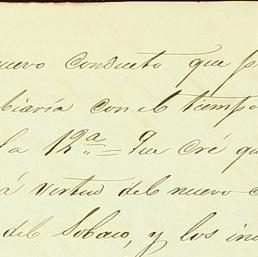 nuevo conducto que p
biaría con el tiempo
la 12ª = Que cré qu
á virtud del nuevo c
del Sobaco, y los in